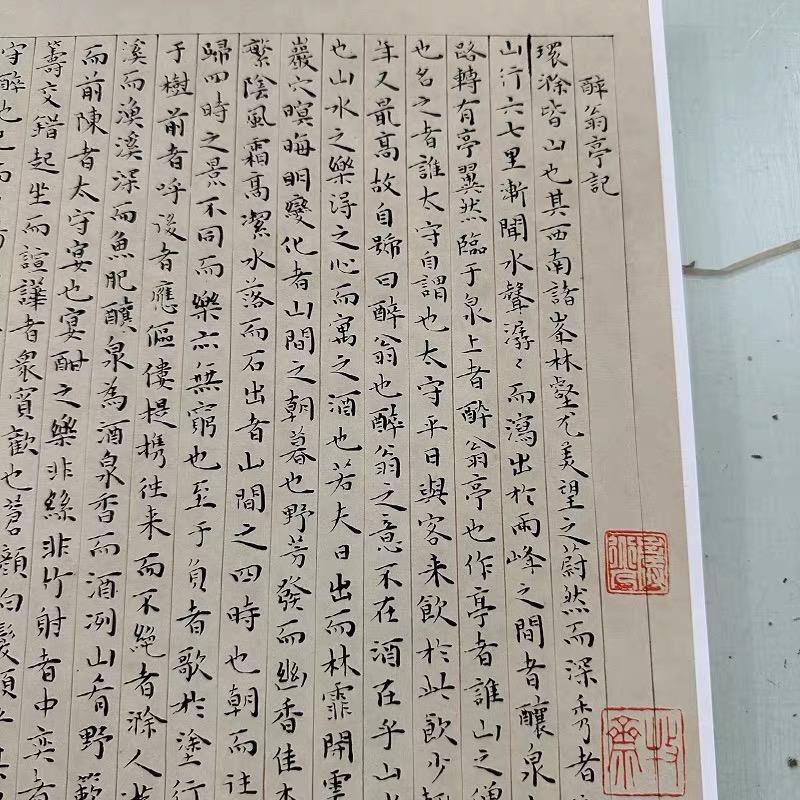 醉翁亭記
環滁皆山也其西南諸峯林壑尤美望之蔚然而深秀者
山行六七里漸聞水聲潺〻而瀉出於兩峰之間者釀泉
路轉有亭翼然臨于泉上者醉翁亭也作亭者誰山之僧
也名之者誰太守自謂也太守平日與客来飲於此飲少輒
年又最高故自號曰醉翁也醉翁之意不在酒在乎山水
也山水之樂淂之心而寓之酒也若夫日出而林霏開雲
巖穴暝晦明變化者山間之朝暮也野芳發而幽香佳木
繁陰風霜高潔水落而石出者山間之四時也朝而往
歸四時之景不同而樂亦無窮也至于負者歌於塗行
于樹前者呼後者應傴僂提携往来而不絶者滁人遊
溪而漁溪深而魚肥釀泉為酒泉香而酒冽山肴野蔌
而前陳者太守宴也宴酣之樂非絲非竹射者中奕者
籌交錯起坐而諠譁者衆賓歡也蒼顏白髮頹乎其
守醉也已而